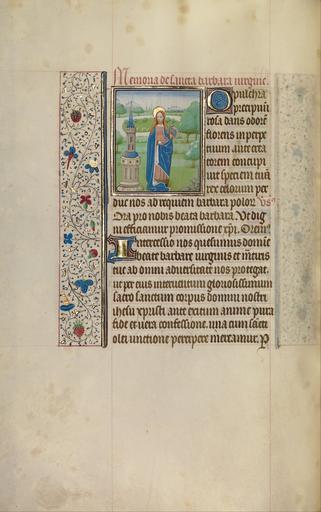 Memoria de sancta barbara uirgine.
O pulchra
precipuū
rosa dans odorē
florens in perpe
tuum ante tera
torem concupi
uit speciem tuā
rex celorum per
duc nos ad requiem barbara polor̄ vs̄
Ora pro nobis beata barbara. Vt dig
ni efficiamur promissione xp̄i. Orem
Intercessio nos quesumus domine
beate barbare uirginis et m̄rtiris
tue ab omni aduersitate nos protegat.
ut per eius interuentum gloriosissimum
sacro sanctum corpus domini nostri
ihesu xpristi ante exitum anime pura
fide et uera confessione. una cum sacri
olei unctione percipere mereamur. P